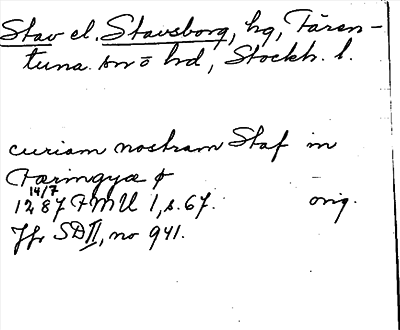 Stav el. Stavsborg, hg, Fären-
tuna sn o hd, Stockh. l.
curiam nostram Staf in
Faringyæ
14/7
1287 FMU 1, s. 67. orig.
Jfr SD II, no 941.